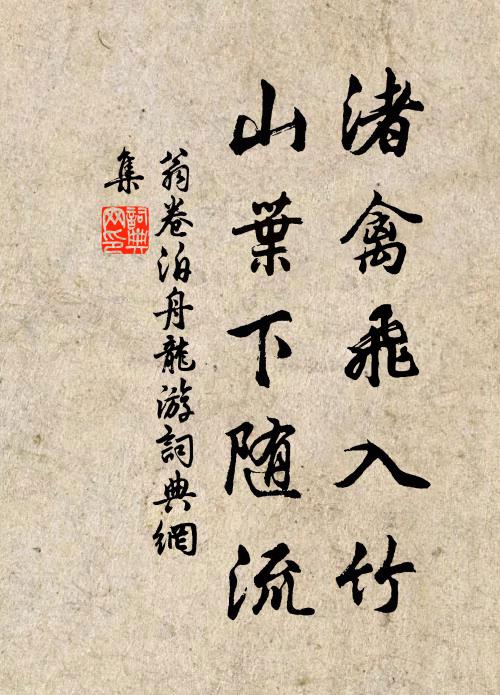 渚禽飛入竹
山葉下随流
翁卷泊舟龍游詞典網
集
詞典
网印